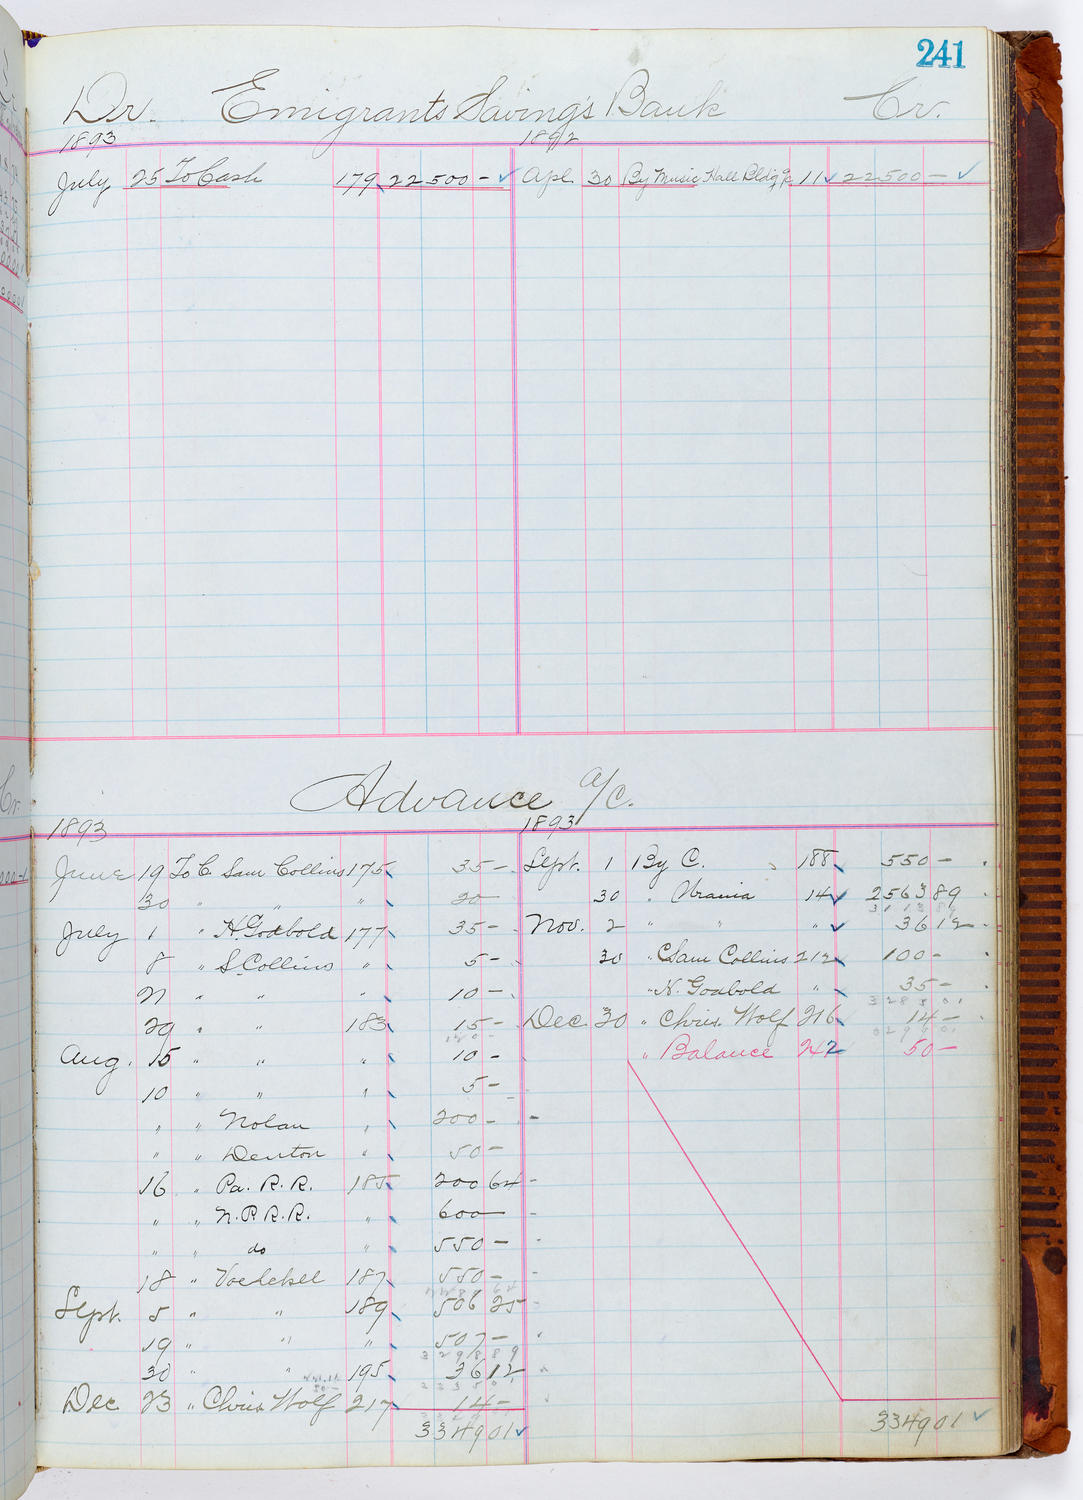 241
Dr. Emigrants Savings Bank Cr.
1893 1892
July 25 To Cash 179 22500 - ✓ Apl. 30 By Music Hall Bldg a/c 11 ✓ 22500 - ✓
Advance a/c.
1893 1893
June 19 To C. Sam Collins 175 35 - Sept. 1 By C. 188 550 -
30 " " " 20 - 30 " Urania 14 ✓ 2563 89
July 1 " H. Godbold 177 35 - Nov. 2 " " " ✓ 36 12 -
8 " S. Collins " 5 - 30 " C Sam Collins 212 100 -
21 " " " 10 - " H. Godbold " 35 -
29 " " 183 15 - Dec. 30 " Chris. Wolf 216 14 -
Aug. 15 " " " 10 - " Balance 242 50 -
10 " " " 5 -
" " Nolan " 200 -
" " Denton " 50 -
16 " Pa. R. R. 185 200 64 -
" " N. P. R. R. " 600 -
" " do " 550 -
18 " Voelckel 187 550 -
Sept. 5 " " 189 506 25 -
19 " " " 507 -
30 " 195 36 12
Dec 23 " Chris Wolf 217 14 -
3349 01 ✓ 3349 01 ✓